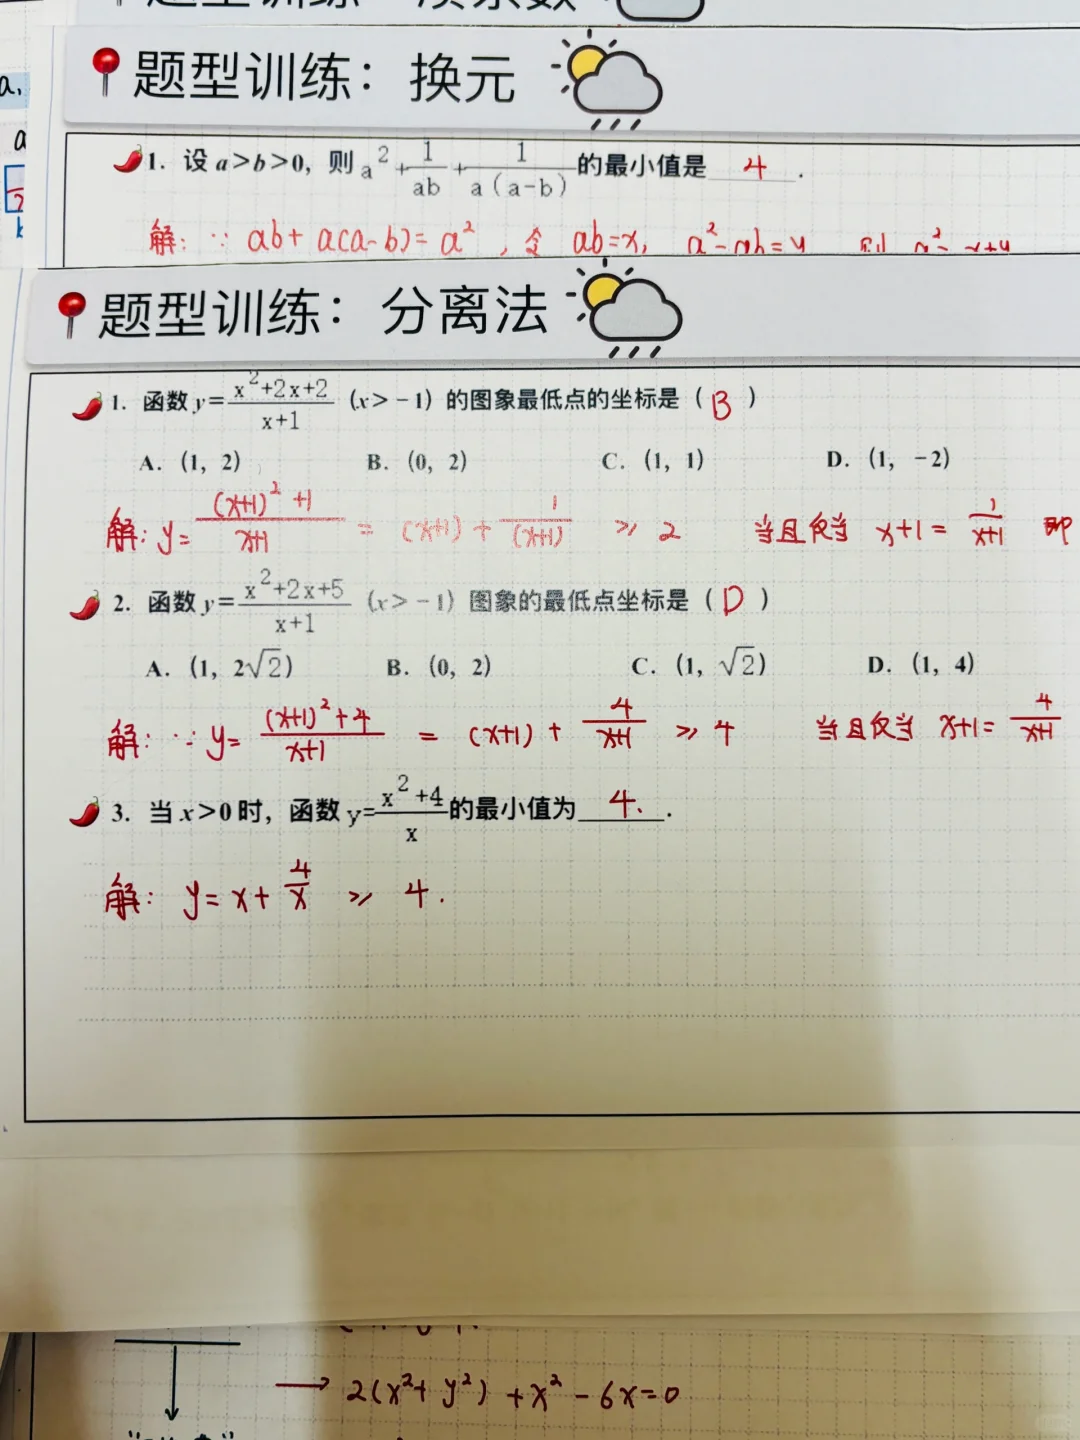 题型训练：换元
1. 设 a>b>0, 则 a²+1/ab+1/a(a-b)的最小值是 4 .
解: ∵ ab+a(a-b)=a², 令 ab=x, a²-ab=y 则 a²=x+y
题型训练：分离法
1. 函数 y=x²+2x+2/x+1 (x>-1) 的图象最低点的坐标是 ( B )
A. (1, 2) B. (0, 2) C. (1, 1) D. (1, -2)
解: y=(x+1)²+1/x+1 = (x+1)+1/(x+1) ≥ 2 当且仅当 x+1=1/x+1 即
2. 函数 y=x²+2x+5/x+1 (x>-1) 图象的最低点坐标是 ( D )
A. (1, 2√2) B. (0, 2) C. (1, √2) D. (1, 4)
解: ∵ y=(x+1)²+4/x+1 = (x+1)+4/x+1 ≥ 4 当且仅当 x+1=4/x+1
3. 当 x>0 时, 函数 y=x²+4/x的最小值为 4. .
解: y=x+4/x ≥ 4.
→ 2(x²+y²)+x²-6x=0